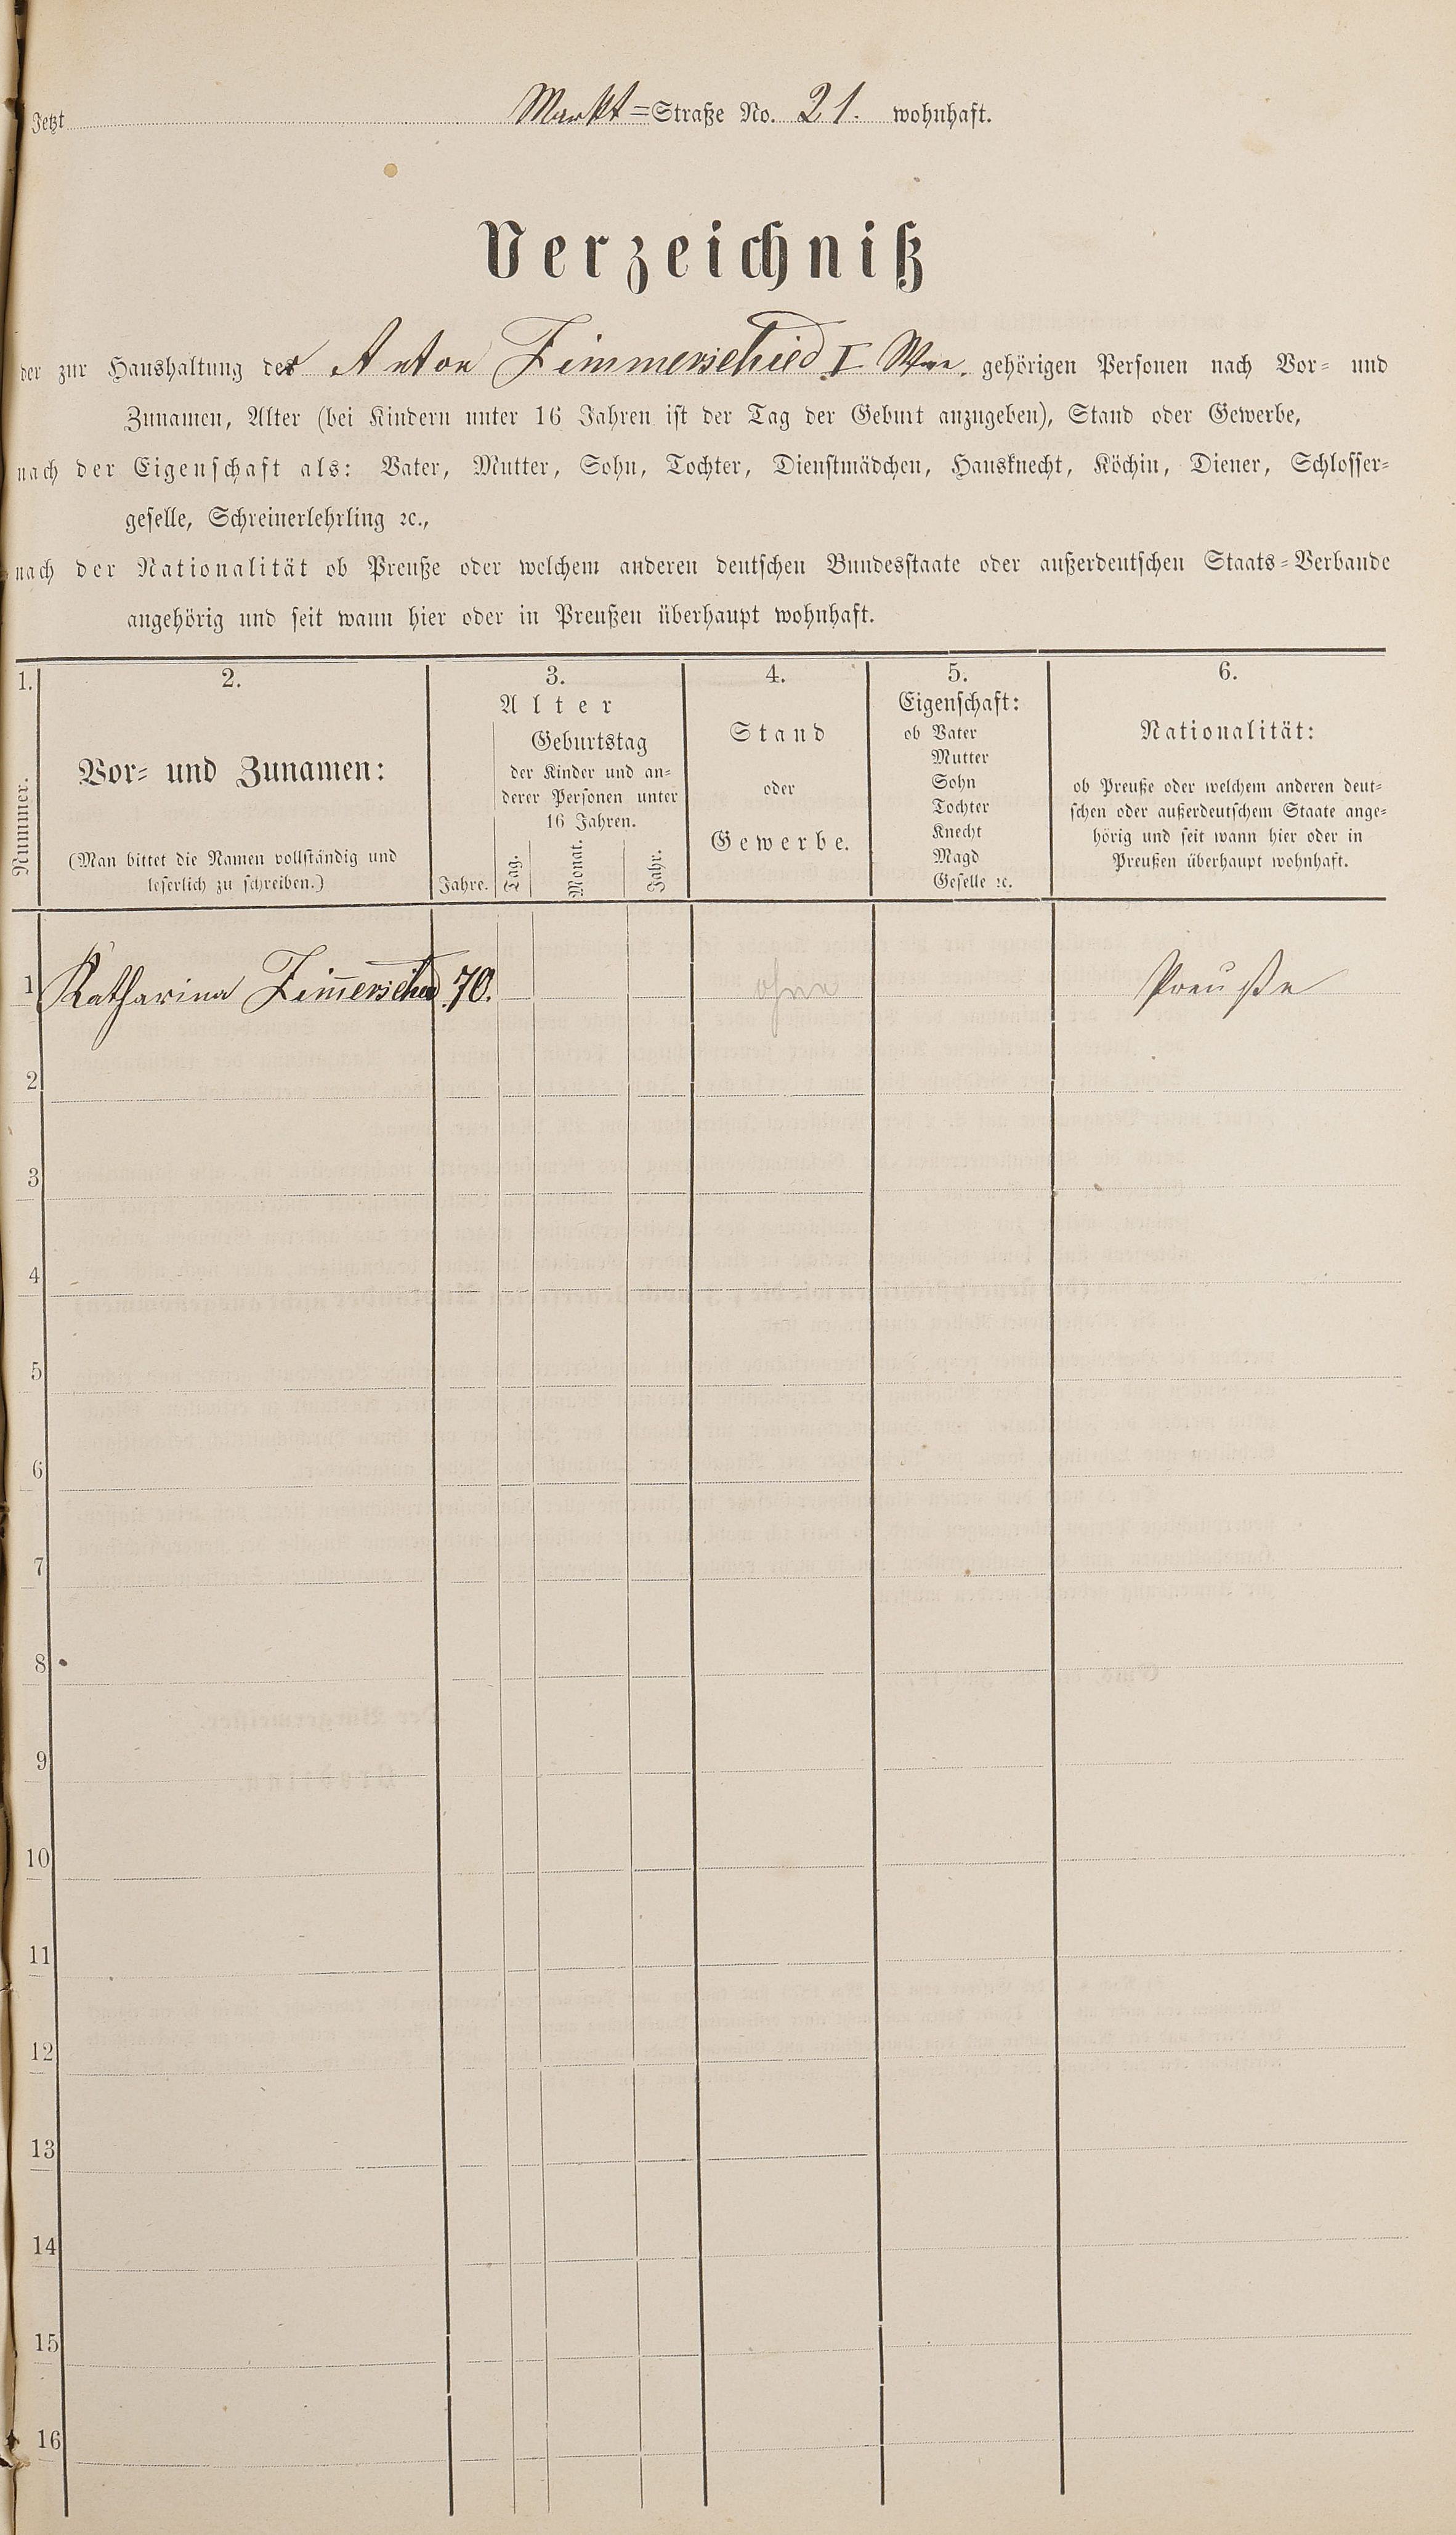 Jetzt Markt=Straße No. 21. wohnhaft.
Verzeichniß
der zur Haushaltung der Anton Zimmerschied I Wwe. gehörigen Personen nach Vor- und
Zunamen, Alter (bei Kindern unter 16 Jahren ist der Tag der Geburt anzugeben), Stand oder Gewerbe,
nach der Eigenschaft als: Vater, Mutter, Sohn, Tochter, Dienstmädchen, Hausknecht, Köchin, Diener, Schlosser-
geselle, Schreinerlehrling ꝛc.,
nach der Nationalität ob Preuße oder welchem anderen deutschen Bundesstaate oder außerdeutschen Staats-Verbande
angehörig und seit wann hier oder in Preußen überhaupt wohnhaft.
1.
Nummer.
2.
Vor- und Zunamen:
(Man bittet die Namen vollständig und
leserlich zu schreiben.)
3.
Alter
Geburtstag
der Kinder und an-
derer Personen unter
16 Jahren.
Jahre. Tag. Monat. Jahr.
4.
Stand
oder
Gewerbe.
5.
Eigenschaft:
ob Vater
Mutter
Sohn
Tochter
Knecht
Magd
Geselle ꝛc.
6.
Nationalität:
ob Preuße oder welchem anderen deut-
schen oder außerdeutschem Staate ange-
hörig und seit wann hier oder in
Preußen überhaupt wohnhaft.
1 Katharina Zim̅erschied 70. ohne Preuße
2
3
4
5
6
7
8
9
10
11
12
13
14
15
16